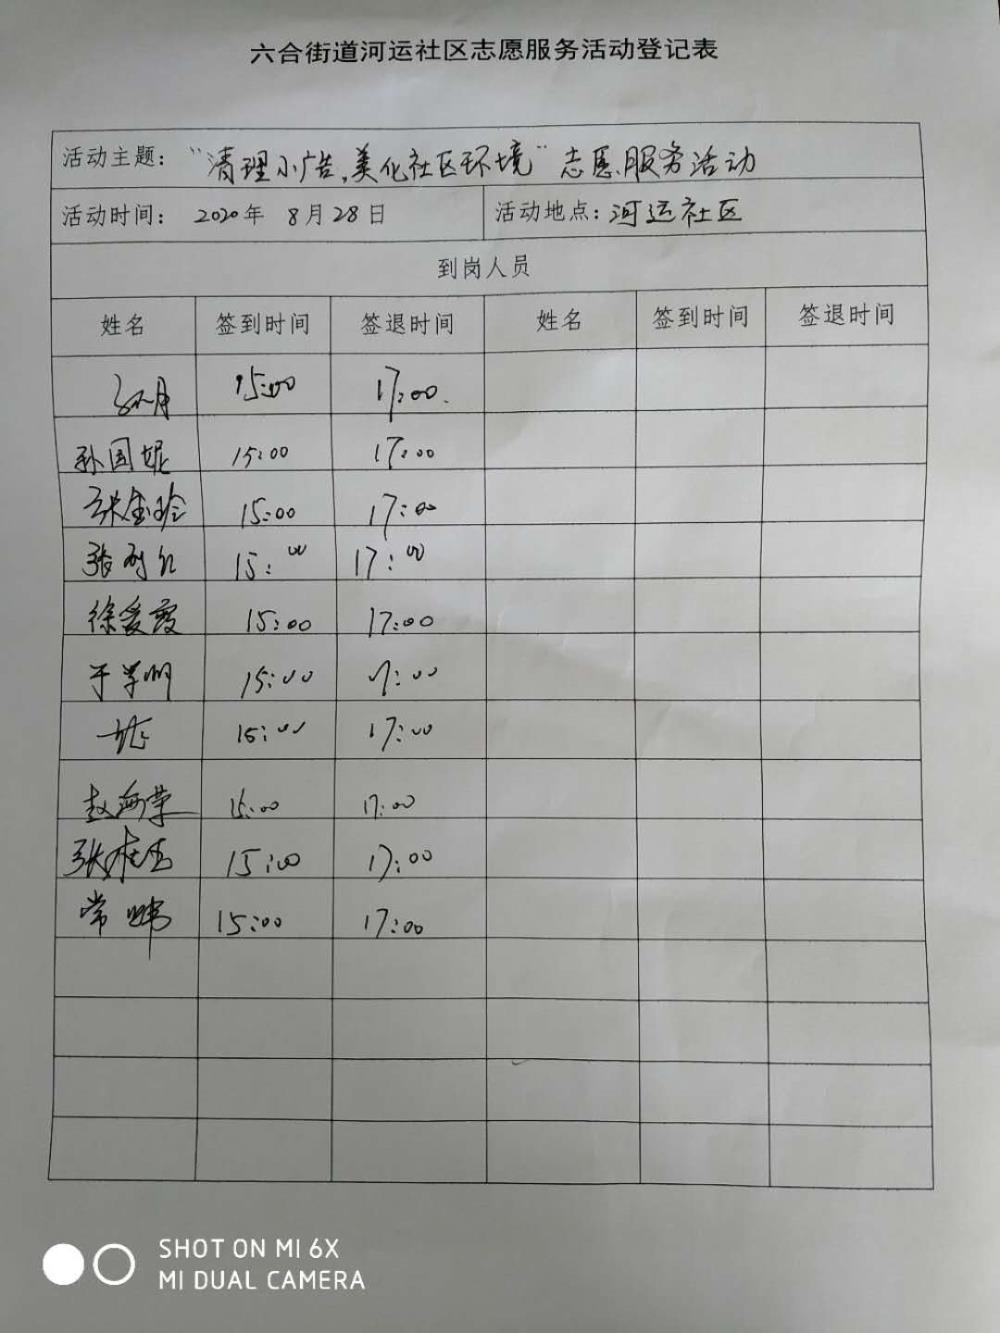 六合街道河运社区志愿服务活动登记表
活动主题："清理小广告,美化社区环境"志愿服务活动
活动时间： 2020年 8月28日 活动地点：河运社区
到岗人员
姓名 签到时间 签退时间 姓名 签到时间 签退时间
15:00 17:00.
孙国妮 15:00 17:00
张金玲 15:00 17:00
张利红 15:00 17:00
徐爱霞 15:00 17:00
于 15:00 17:00
15:00 17:00
赵海荣 15:00 17:00
张桂玉 15:00 17:00
常 15:00 17:00
SHOT ON MI 6X
MI DUAL CAMERA